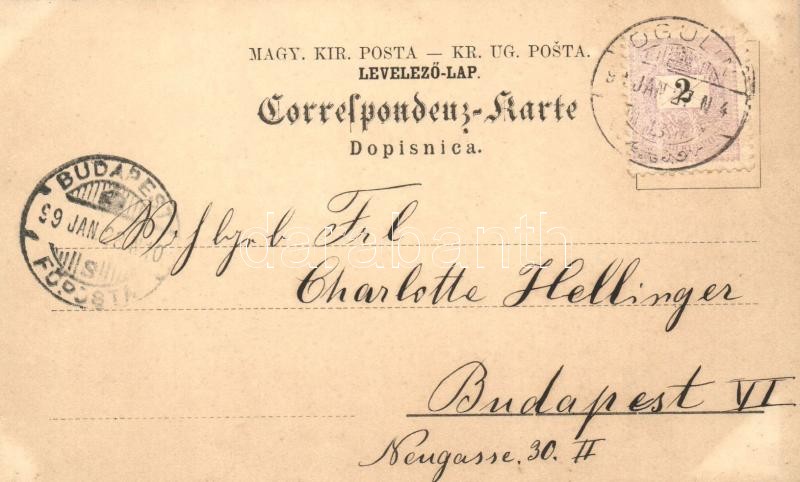 MAGY. KIR. POSTA — KR. UG. POŠTA.
LEVELEZŐ-LAP.
Correspondenz-Karte
Dopisnica.
OGULIN
JAN
N 4
2
BUDAPEST
99 JAN
FŐPOSTA
darabanth
Frl
Charlotte Hellinger
Budapest VI
Neugasse. 30. II